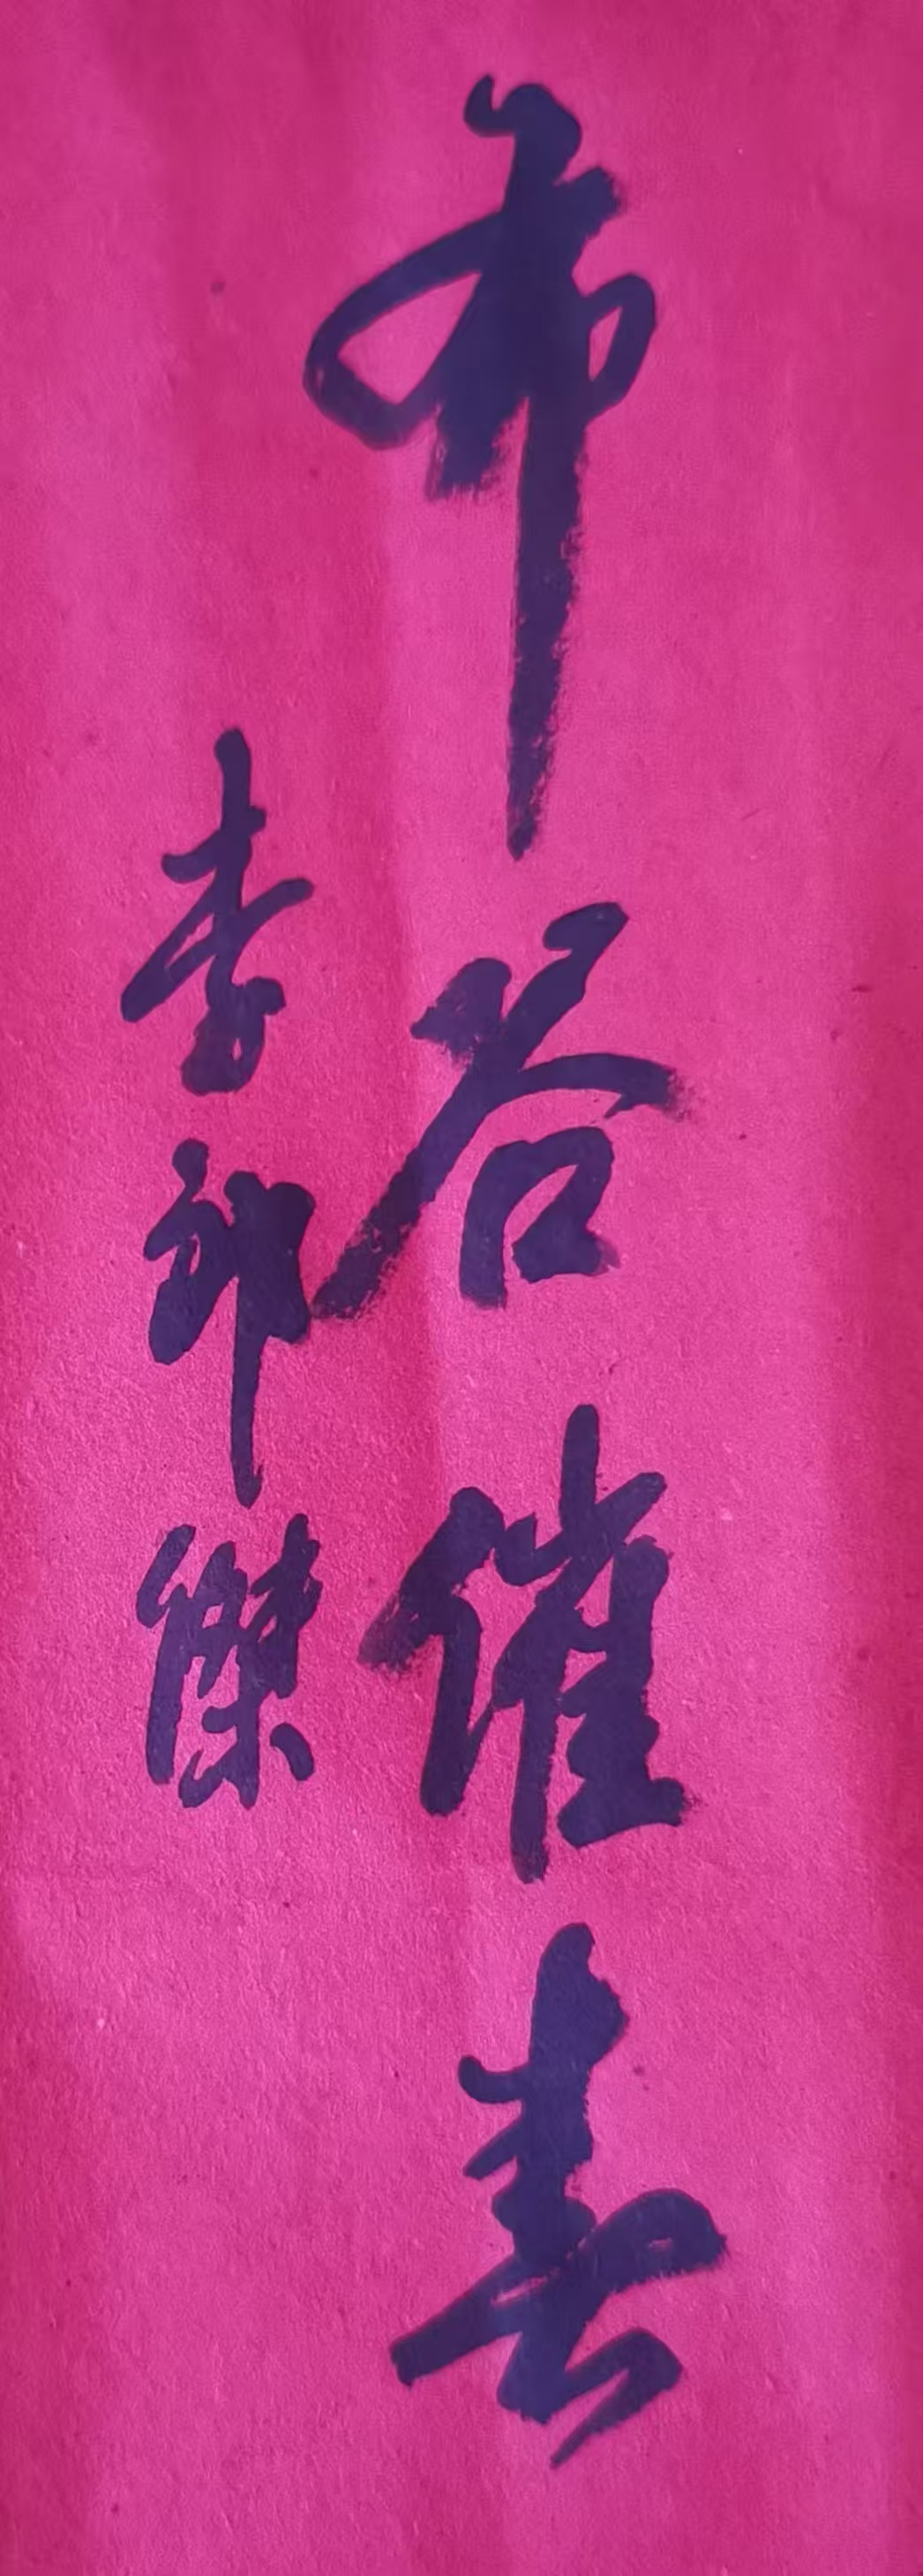 布谷催春
李郎傑